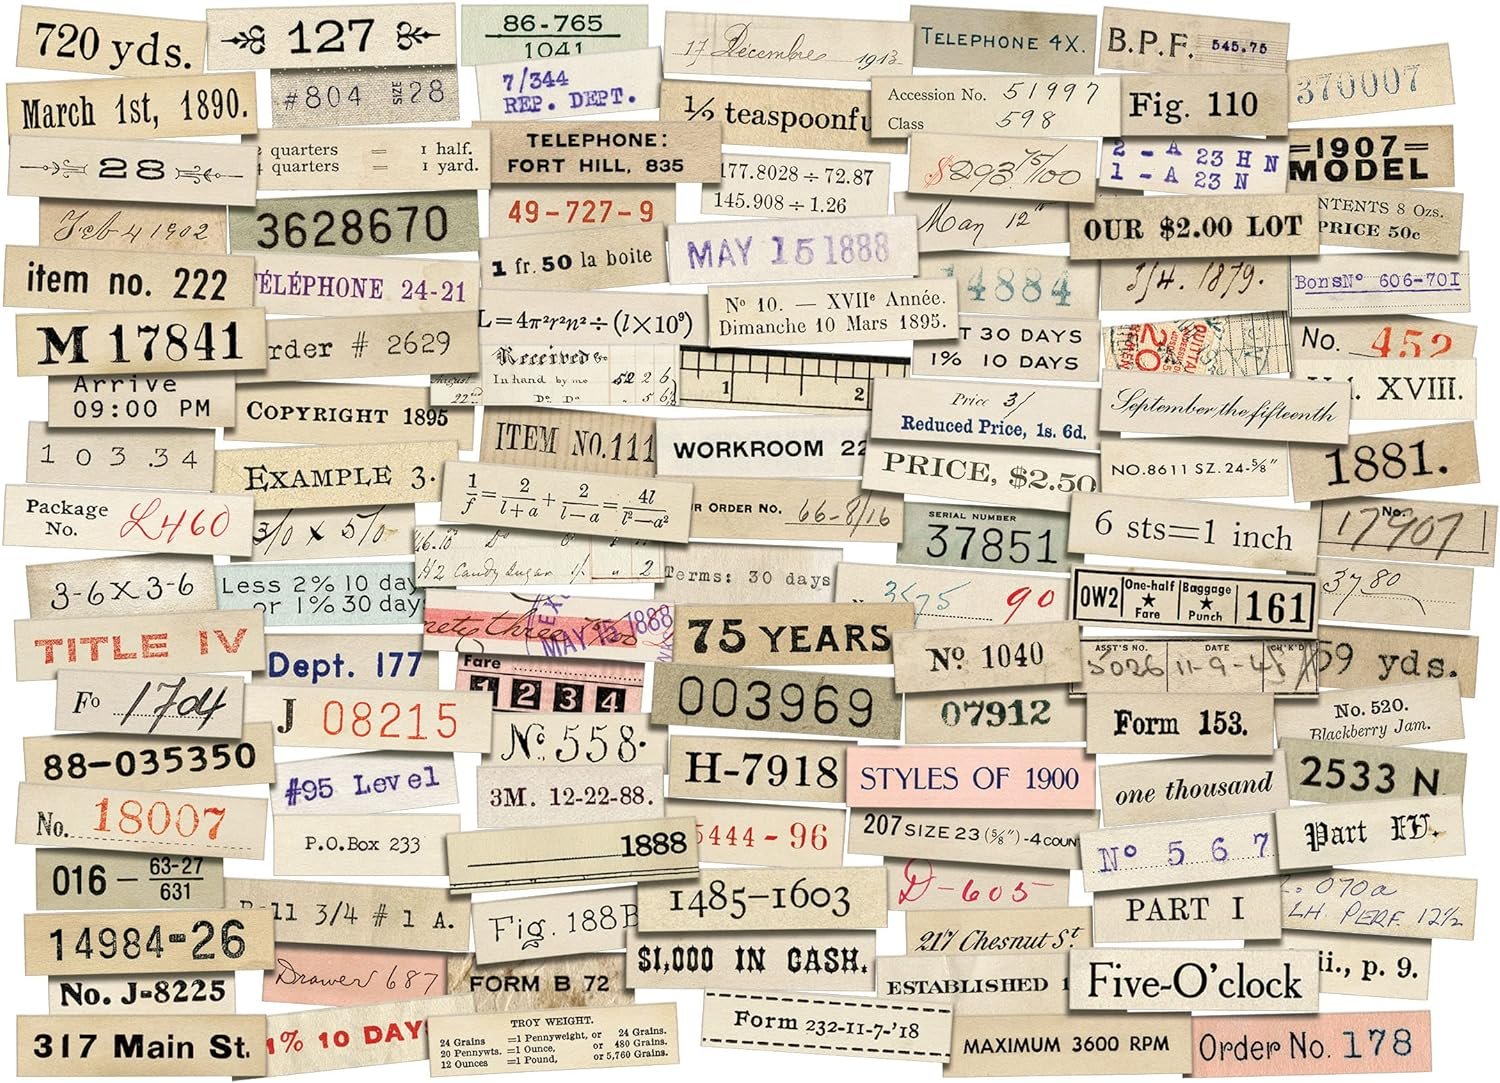 720 yds.
127
86-765
1041
17 Decembre 1913
TELEPHONE 4X.
B.P.F. 545.75
370007
March 1st, 1890.
#804 SIZE 28
7/344
REP. DEPT.
½ teaspoonfu
Accession No. 51997
Class 598
Fig. 110
28
quarters = 1 half.
4 quarters = 1 yard.
TELEPHONE:
FORT HILL, 835
177.8028 ÷ 72.87
145.908 ÷ 1.26
$293 75/100
2 - A 23 H N
1 - A 23 N
=1907=
MODEL
Feb 4 1902
3628670
49-727-9
MAY 15 1888
May 12th
OUR $2.00 LOT
NTENTS 8 Ozs.
PRICE 50c
item no. 222
TÉLÉPHONE 24-21
1 fr. 50 la boite
No 10. — XVIIe Année.
Dimanche 10 Mars 1895.
4884
3/4. 1879.
Bons No 606-701
M 17841
rder # 2629
L=4π²r²n²÷(l×10⁹)
T 30 DAYS
1% 10 DAYS
20
No. 452
Arrive
09:00 PM
COPYRIGHT 1895
Received
In hand by me 52 2 6
Do Do 5 6
August
22nd
1 2
Price 3/
Reduced Price, 1s. 6d.
September the fifteenth
XVIII.
1 0 3 .3 4
EXAMPLE 3.
ITEM NO.111
WORKROOM 22
PRICE, $2.50
NO.8611 SZ. 24-⅝"
1881.
Package
No. L460
3/0 x 5/0
1/f = 2/(l+a) + 2/(l−a) = 4l/(l²−a²)
R ORDER No. 66-8/16
SERIAL NUMBER
37851
6 sts=1 inch
No.
17907
3-6x3-6
Less 2% 10 day
or 1% 30 day
42 Candy Sugar
Terms: 30 days
3575 90
OW2 One-half Fare Baggage Punch 161
3780
TITLE IV
Dept. 177
nety three
MAY 15 1888
75 YEARS
No 1040
ASST'S NO. DATE CH'K'D
5026 11-9-48
59 yds.
Fo 1704
J 08215
Fare
1 2 3 4
003969
07912
Form 153.
No. 520.
Blackberry Jam.
88-035350
#95 Level
No. 558.
H-7918
STYLES OF 1900
one thousand
2533 N
No. 18007
P.O.Box 233
3M. 12-22-88.
5444-96
207 SIZE 23 (⅝")-4 COUN
No 5 6 7
Part IV.
016 — 63-27
631
1888
1485–1603
D-605
PART I
070a
LH. PERF. 12½
14984-26
ll 3/4 # 1 A.
Fig. 188B
$1,000 IN CASH.
217 Chesnut St.
ii., p. 9.
No. J-8225
Drawer 687
FORM B 72
ESTABLISHED 1
Five-O'clock
317 Main St.
1% 10 DAY
TROY WEIGHT.
24 Grains =1 Pennyweight, or 24 Grains.
20 Pennywts. =1 Ounce, or 480 Grains.
12 Ounces =1 Pound, or 5,760 Grains.
Form 232-11-7-'18
MAXIMUM 3600 RPM
Order No. 178